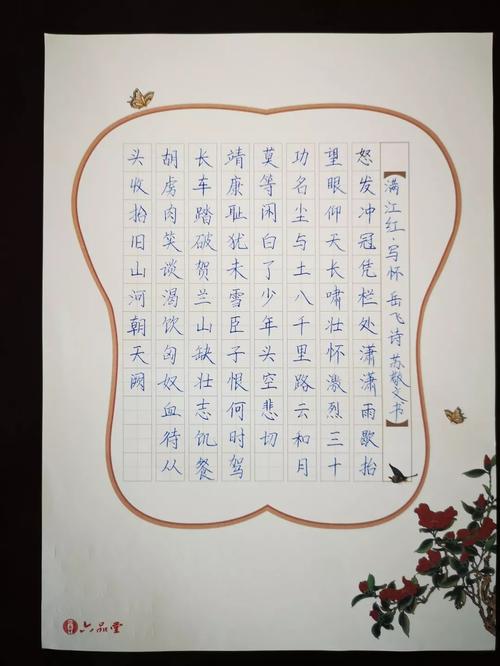 【满江红·写怀 岳飞诗 苏敬文书】
怒发冲冠凭栏处潇潇雨歇抬
望眼仰天长啸壮怀激烈三十
功名尘与土八千里路云和月
莫等闲白了少年头空悲切
靖康耻犹未雪臣子恨何时驾
长车踏破贺兰山缺壮志饥餐
胡虏肉笑谈渴饮匈奴血待从
头收拾旧山河朝天阙
六品堂